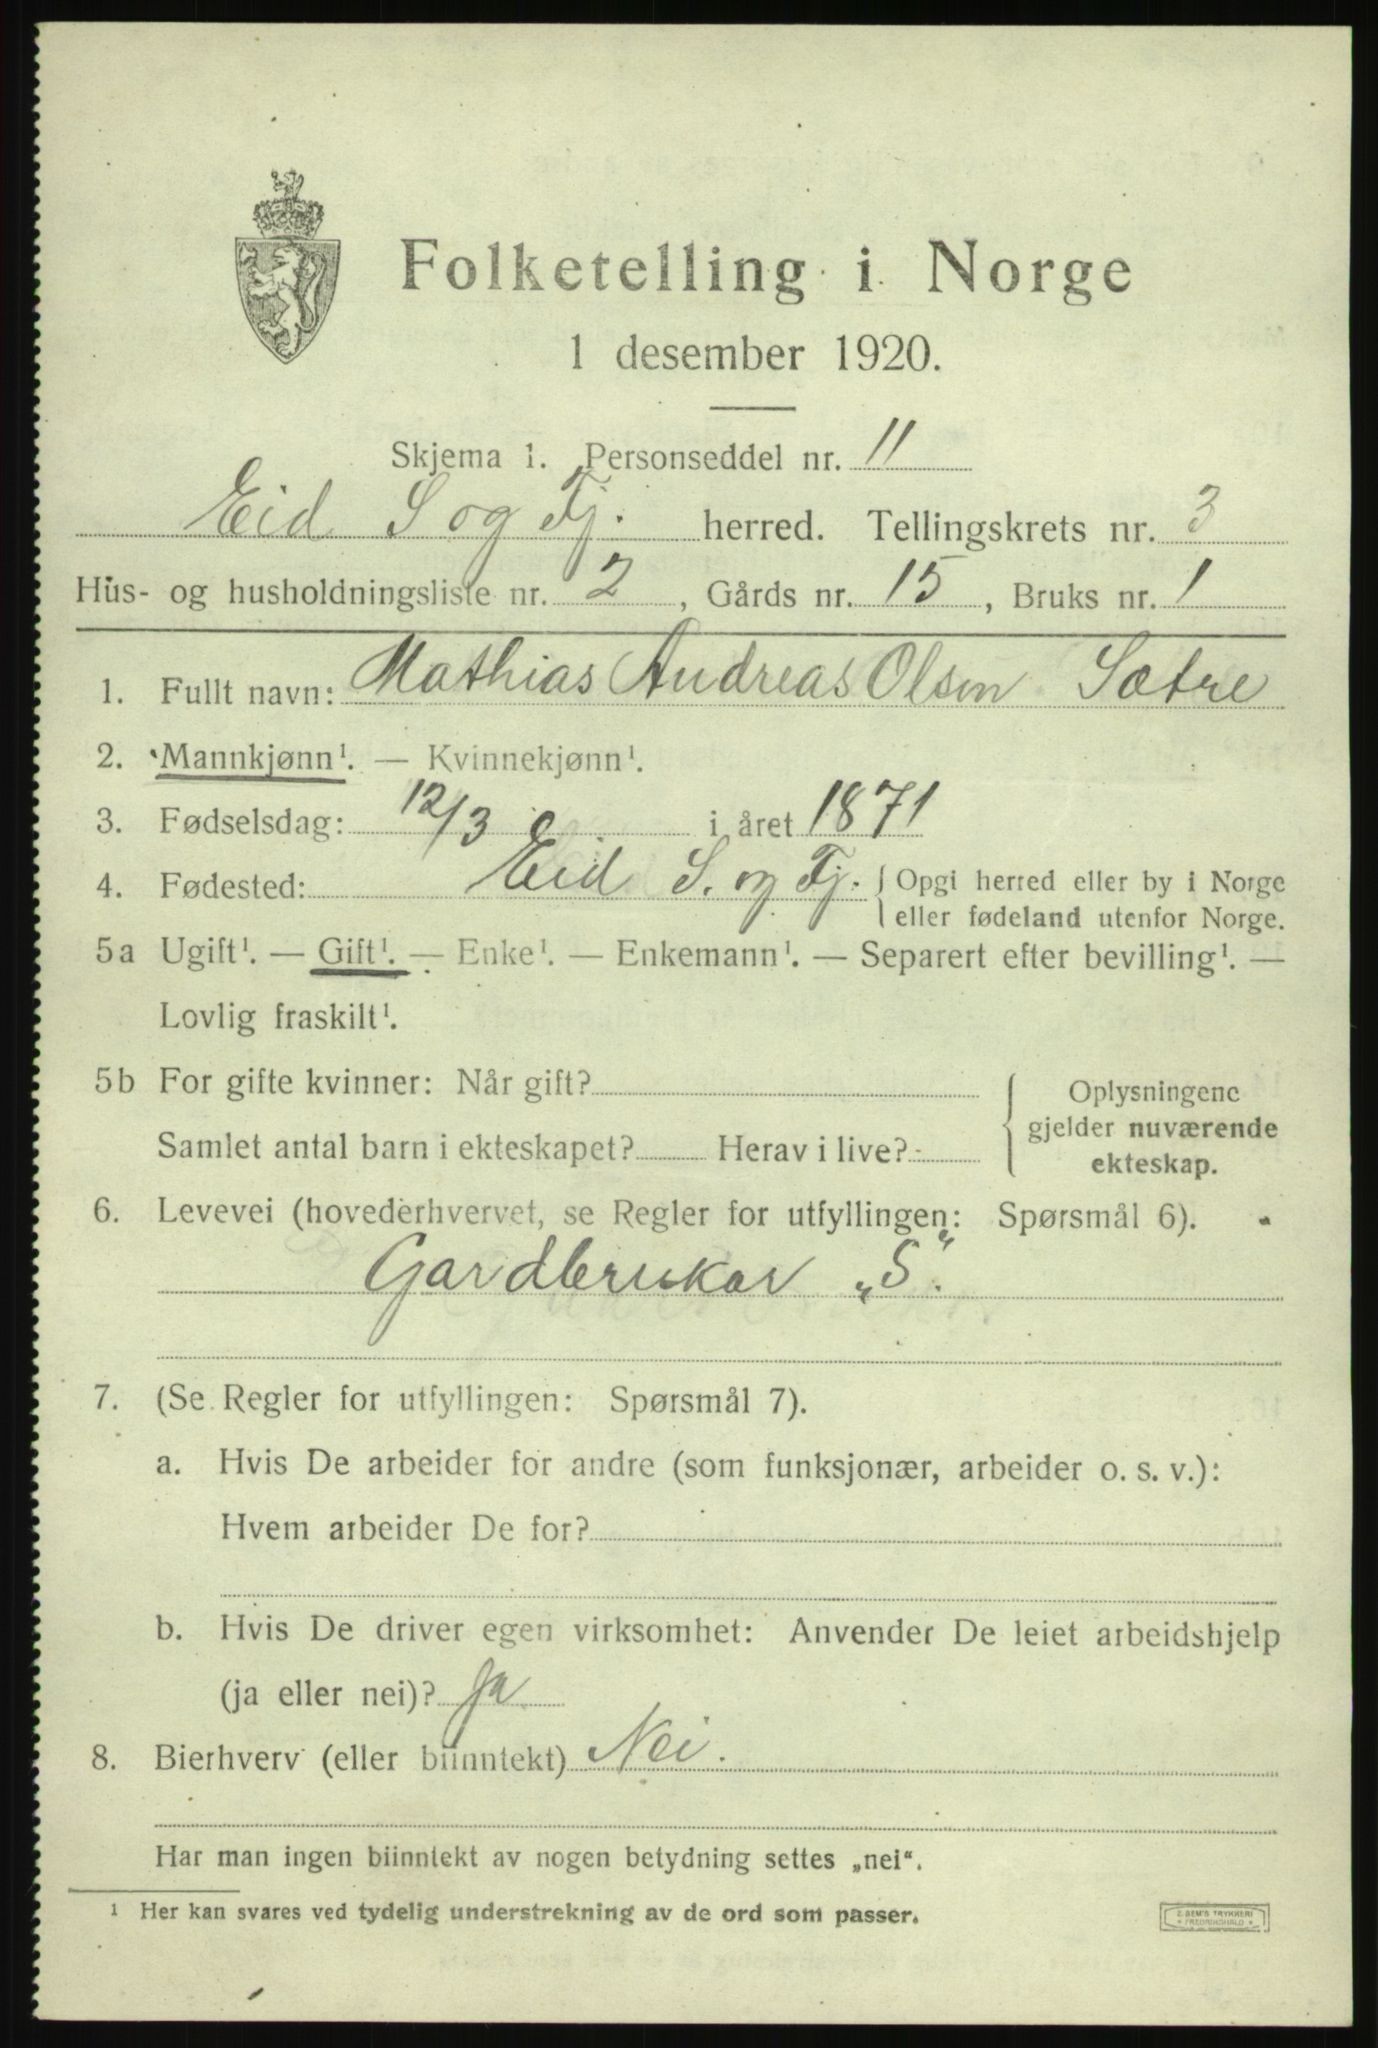 Folketelling i Norge
1 desember 1920.
Skjema 1. Personseddel nr. 11
Eid S og Fj. herred. Tellingskrets nr. 3
Hus- og husholdningsliste nr. 2, Gårds nr. 15, Bruks nr. 1
1. Fullt navn: Mathias Andreas Olsen Sætre
2. Mannkjønn¹. — Kvinnekjønn¹.
3. Fødselsdag: 12/3 i året 1871
4. Fødested: Eid S. og Fj. { Opgi herred eller by i Norge
eller fødeland utenfor Norge.
5a Ugift¹. — Gift¹. — Enke¹. — Enkemann¹. — Separert efter bevilling¹. —
Lovlig fraskilt¹.
5b For gifte kvinner: Når gift?
Samlet antal barn i ekteskapet? Herav i live?
{ Oplysningene
gjelder nuværende
ekteskap.
6. Levevei (hovederhvervet, se Regler for utfyllingen: Spørsmål 6).
Gardbrukar „S“.
7. (Se Regler for utfyllingen: Spørsmål 7).
a. Hvis De arbeider for andre (som funksjonær, arbeider o. s. v.):
Hvem arbeider De for?
b. Hvis De driver egen virksomhet: Anvender De leiet arbeidshjelp
(ja eller nei)? Ja
8. Bierhverv (eller biinntekt) Nei.
Har man ingen biinntekt av nogen betydning settes „nei“.
¹ Her kan svares ved tydelig understrekning av de ord som passer.
E. SEM'S TRYKKERI
FREDRIKSHALD